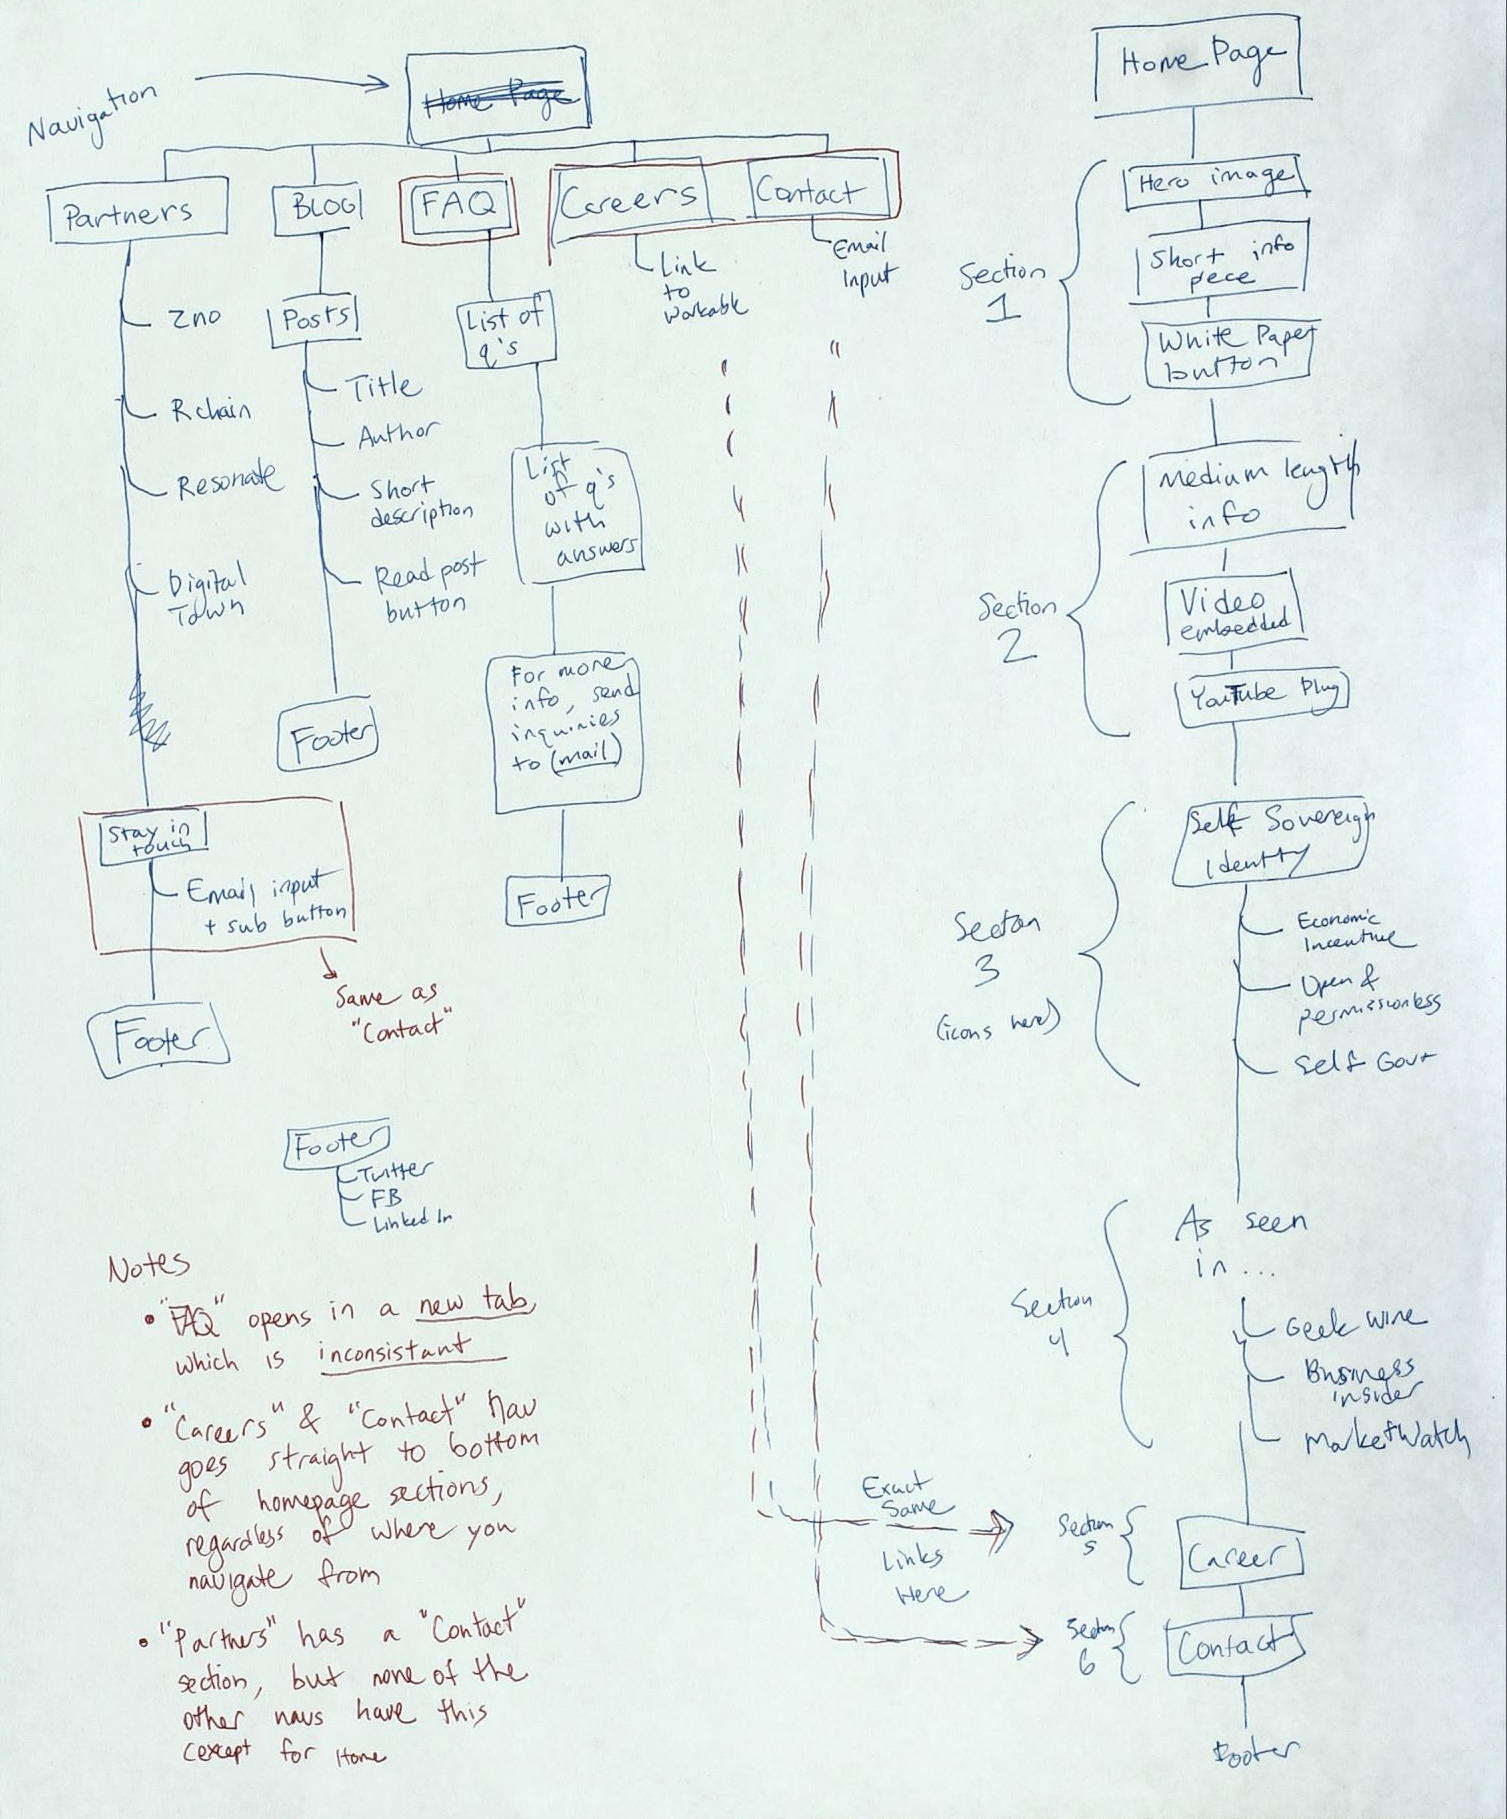 Navigation
Home Page
Partners
BLOG
FAQ
Careers
Contact
2no
Rchain
Resonate
Digital
Town
Stay in
touch
Email input
+ sub button
Same as
"Contact"
Footer
Posts
Title
Author
Short
description
Read post
button
Footer
List of
q's
List
of q's
with
answers
For more
info, send
inquiries
to (mail)
Footer
Link
to
Workable
Email
Input
Footer
Twitter
FB
Linked In
Notes
• "FAQ" opens in a new tab,
which is inconsistant
• "Careers" & "Contact" nav
goes straight to bottom
of homepage sections,
regardless of where you
navigate from
• "Partners" has a "Contact"
section, but none of the
other navs have this
(except for Home
Exact
Same
Links
Here
Home Page
Section
1
Hero image
Short info
piece
White Paper
button
Section
2
Medium length
info
Video
embedded
YouTube Plug
Section
3
(icons here)
Self Sovereign
Identity
Economic
Incentive
Open &
permissionless
Self Govt
Section
4
As seen
in ...
Geek Wire
Business
insider
MarketWatch
Section
5
Career
Section
6
Contact
Footer